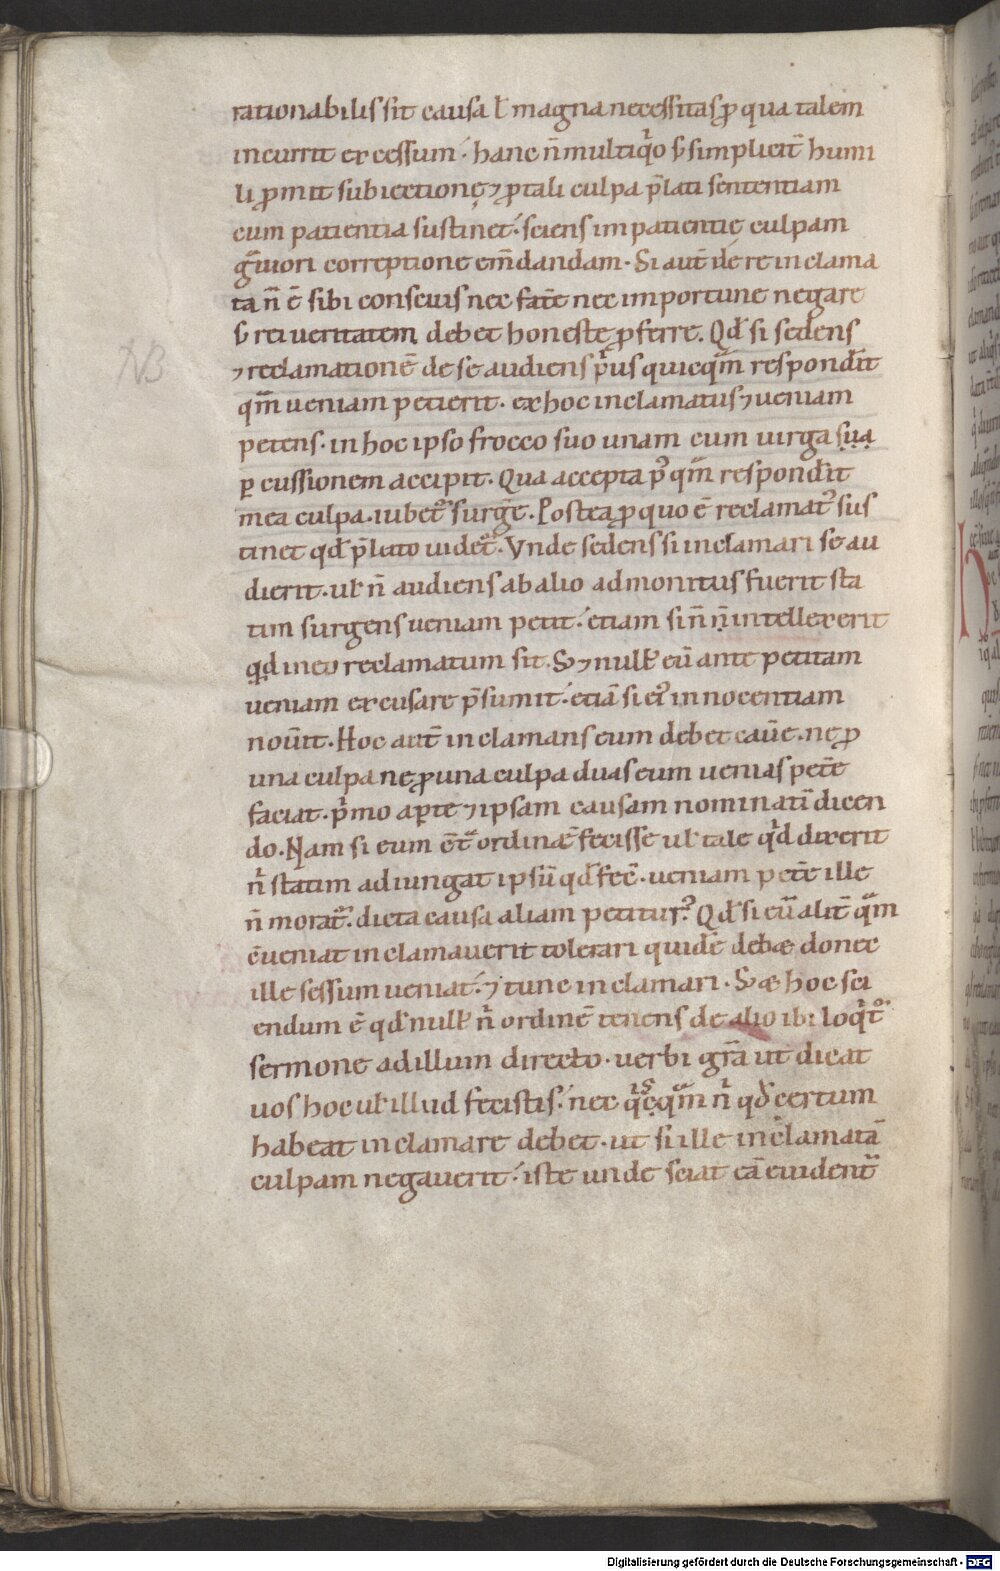 rationabilis sit causa ł magna necessitas ꝓ qua talem
incurrit excessum· hanc n̄ multiqͥo sꝫ simplicit̄ humi
li ꝓmit subiectione ⁊ ꝓ tali culpa p̄lati sententiam
cum patientia sustinet· sciens impatientię culpam
gͣuiori correptione em̄dandam· Si aut̄ de re inclama
ta n̄ ē sibi conscius nec fat̄e nec importune negare
sꝫ rei ueritatem debet honeste ꝓferre. Qd̄ si sedens
⁊ reclamationē de se audiens pͥus quicqͣm respond̄it
qͣm ueniam petierit· ex hoc inclamatus ⁊ ueniam
petens· in hoc ipso frocco suo unam cum uirga sua
ꝑcussionem accipit· Qua accepta pꝰ qͣm respond̄it
mea culpa· iubet᷑ surḡe· Postea ꝓ quo ē reclamat᷑ sus
tinet qd̄ p̄lato uidet᷑· Vnde sedens si inclamari se au
dierit· ul̄ n̄ audiens ab alio admonitus fuerit sta
tim surgens ueniam petit· etiam si n̄ intellexerit
qd in eū reclamatum sit· Sꝫ ⁊ null᷑ eū ante petitam
ueniam excusare p̄sumit· etiā si eiꝰ innocentiam
nou̅it· Hoc aut̄ inclamans eum debet cau̅e· ne ꝓ
una culpa ne ꝓ una culpa duas eum uenias pet̄e
faciat· pͥmo aꝑte ⁊ ipsam causam nominati᷑ dicen
do· Nam si eum cͨt̄ͣ ordinē fecisse ul̄ tale qͥd dixerit
nͥ statim adiungat ipsū qd̄ fec̄· ueniam pet̄e ille
n̄ morat᷑· dicta causa aliam petitur᷑? Qd̄ si eū alit̄ qͣm
c̄ueniat inclamauerit tolerari quidē debæ donec
ille sessum ueniat· ⁊ tunc inclamari· Sꝫ æ hoc sci
endum ē qd̄ null᷑ nͥ ordinē tenens de alio ibi loqͥt᷑
sermone ad illum directo· uerbi gr̄a ut dicat
uos hoc ul̄ illud fecistis· nec qͥcqͣm nͥ qd̄ certum
habeat inclamare debet· ut si ille inclamatā
culpam negauerit· iste unde sciat eā euident᷑
NB
Digitalisierung gefördert durch die Deutsche Forschungsgemeinschaft - DFG